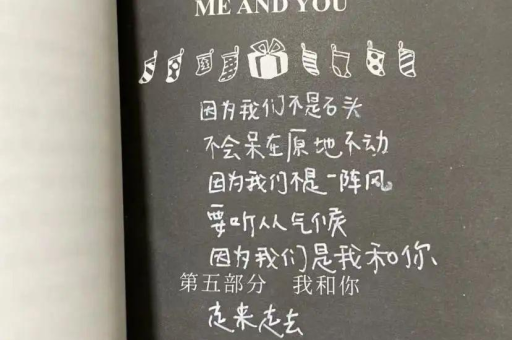 ME AND YOU
因为我们不是石头
不会呆在原地不动
因为我们不是一阵风
要听从气候
因为我们是我和你、
第五部分 我和你
走来走去